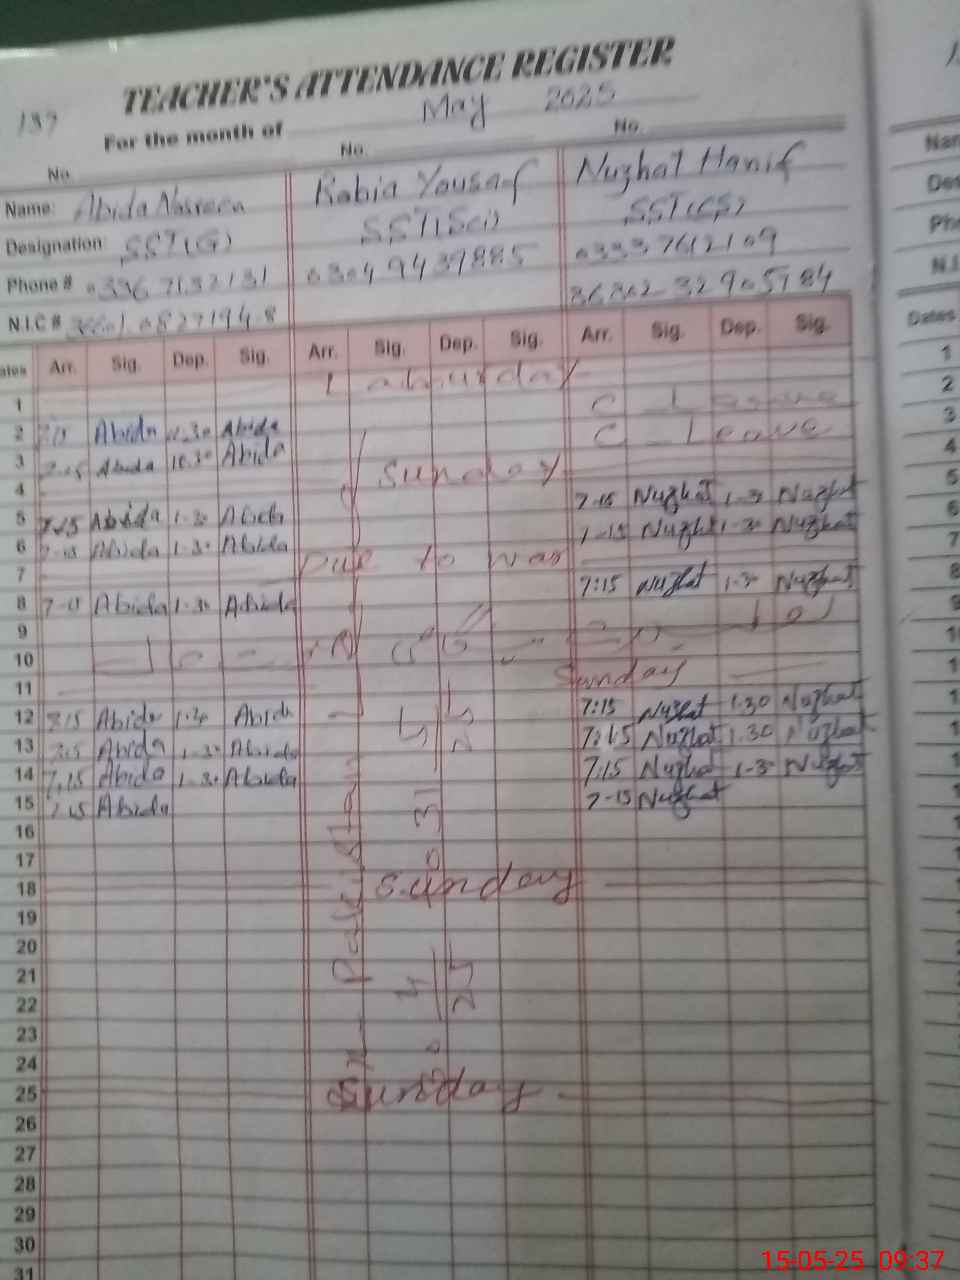 TEACHER'S ATTENDANCE REGISTER
137
For the month of May 2025
No. No. No.
Name: Abida Nasreen Rabia Yousaf Nuzhat Hanif
Designation: SST(G) SST(Sci) SST(CS)
Phone # 03367132131 03049439885 03337612109
N.I.C # 36302-32905784
Dates Arr. Sig. Dep. Sig. Arr. Sig. Dep. Sig. Arr. Sig. Dep. Sig.
1 Labourday
2 7:15 Abida 11.30 Abida C Leave
3 7-15 Abida 10.30 Abida C Leave
4 Sunday
5 7:15 Abida 1-30 Abida 7-15 Nuzhat 1-30 Nuzhat
6 7-15 Abida 1.30 Abida 7-15 Nuzhat 1-30 Nuzhat
7 Due to war
8 7-15 Abida 1.30 Abida 7:15 Nuzhat 1-30 Nuzhat
9
10
11 Sunday
12 7:15 Abida 1.30 Abida 7:15 Nuzhat 1.30 Nuzhat
13 7:15 Abida 1-30 Abida 7:15 Nuzhat 1.30 Nuzhat
14 7:15 Abida 1-30 Abida 7:15 Nuzhat 1-30 Nuzhat
15 7:15 Abida 7-15 Nuzhat
16
17
18 Sunday
19
20
21
22
23
24
25 Sunday
26
27
28
29
30
31
Ex-Pakistan
Dates
1
2
3
4
5
6
7
8
9
15-05-25 09:37